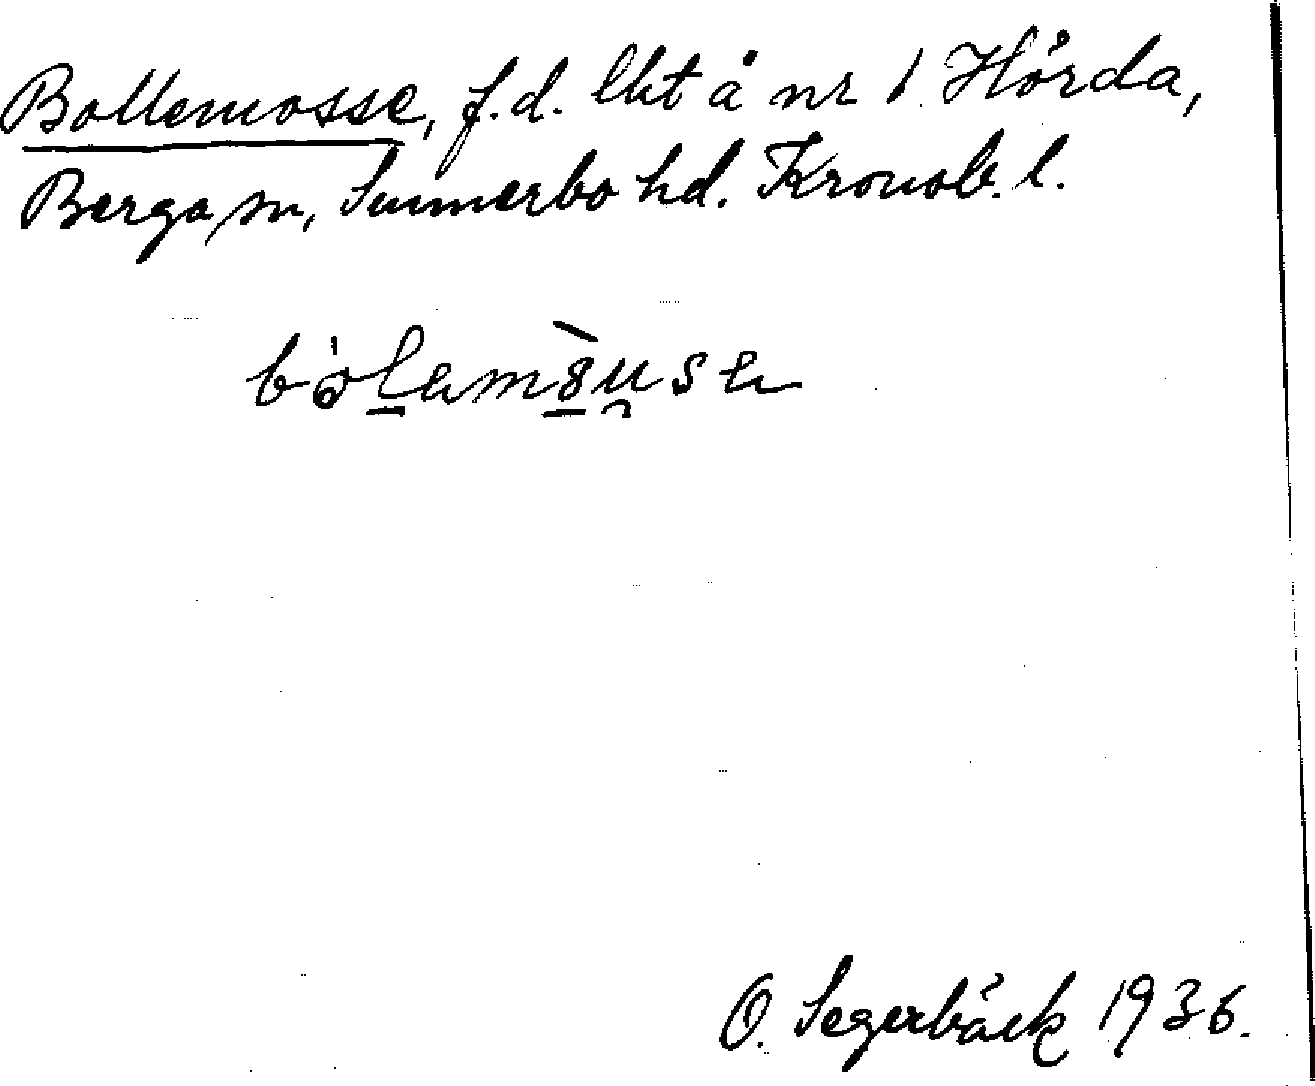 Bollemosse, f.d. lht å nr 1 Hörda,
Berga sn, Sunnerbo hd. Kronob. l.
O. Segerbäck 1936.